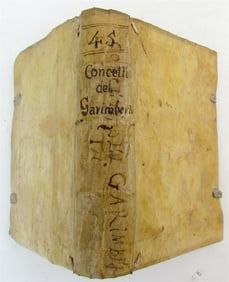 45
Concetti
del
Garimberti
GARIMBER